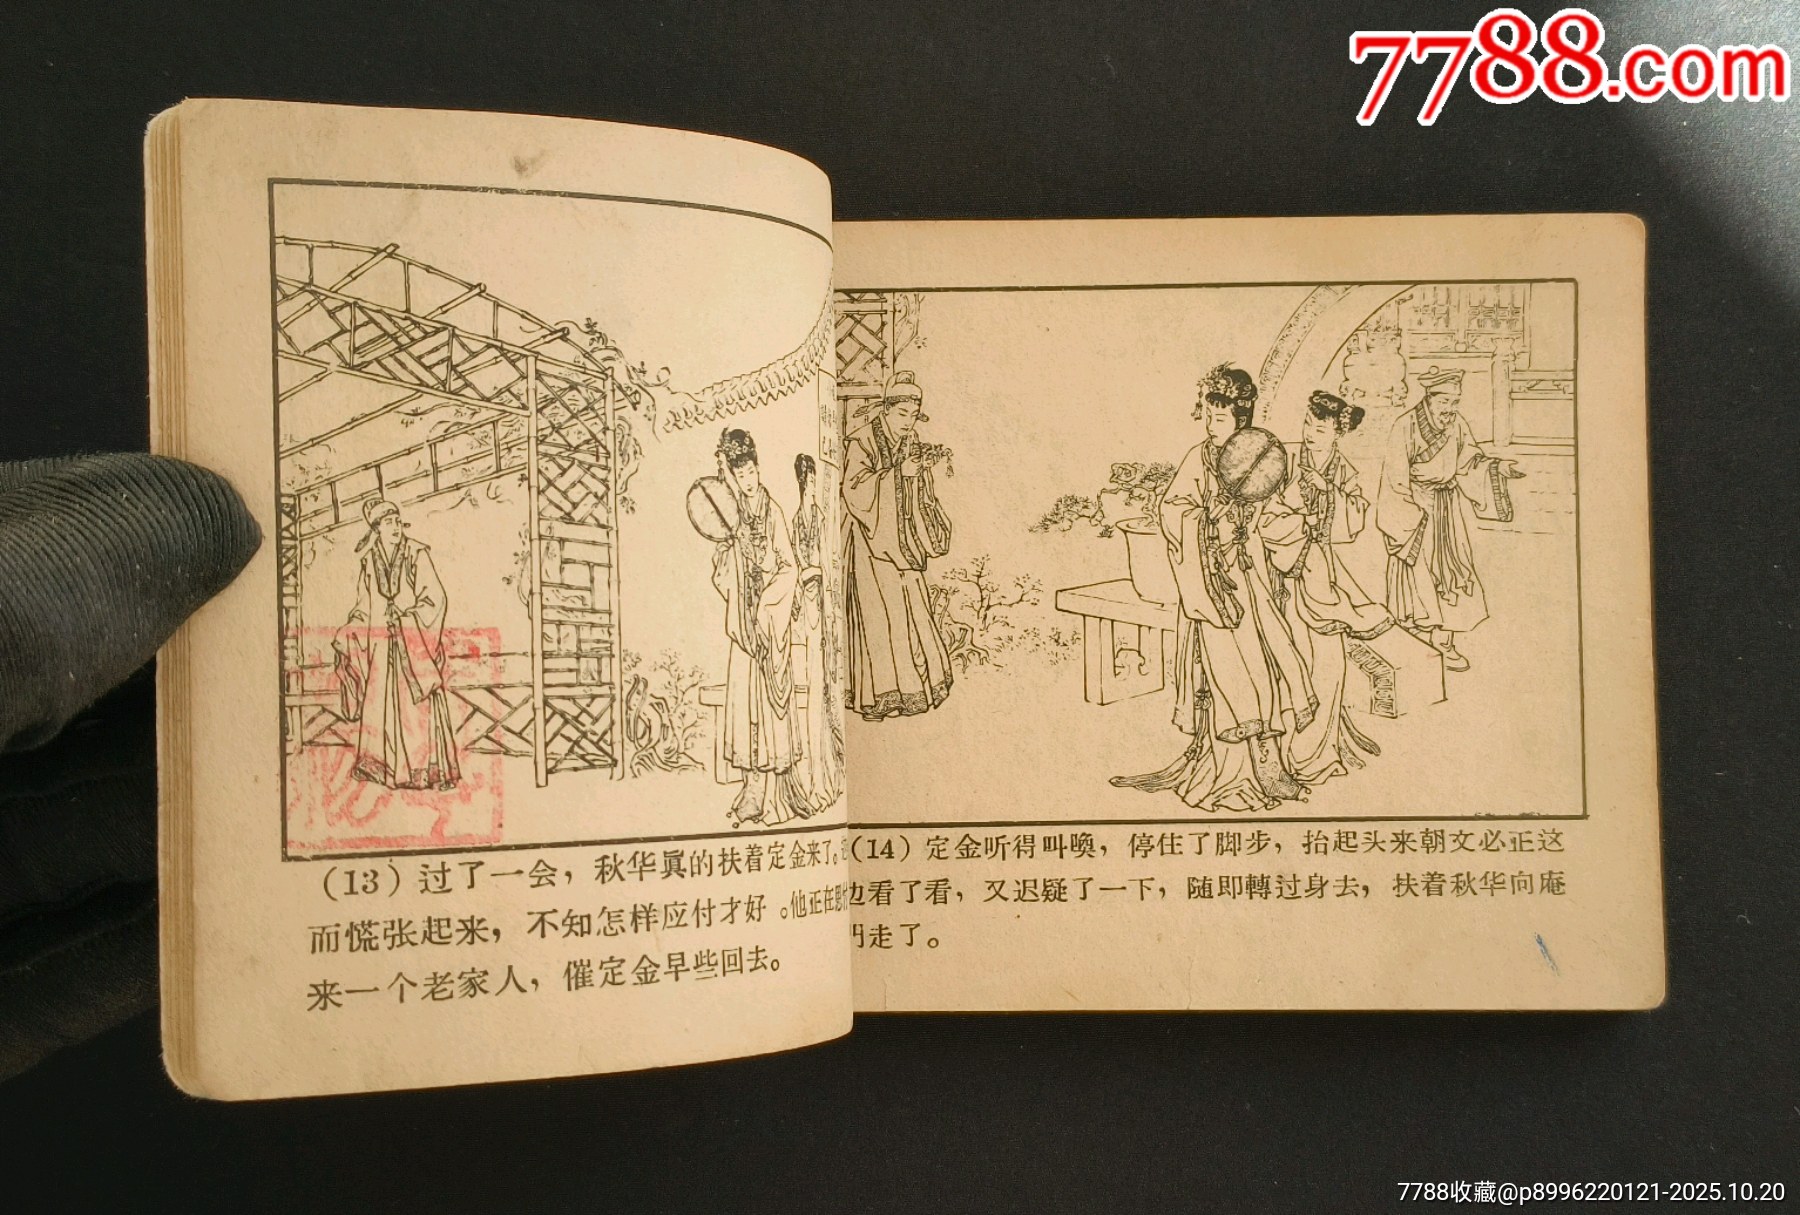 7788.com
（13）过了一会，秋华眞的扶着定金来了。
而慌张起来，不知怎样应付才好。他正在思
来一个老家人，催定金早些回去。
（14）定金听得叫喚，停住了脚步，抬起头来朝文必正这
边看了看，又迟疑了一下，随即轉过身去，扶着秋华向庵
門走了。
7788收藏@p8996220121-2025.10.20